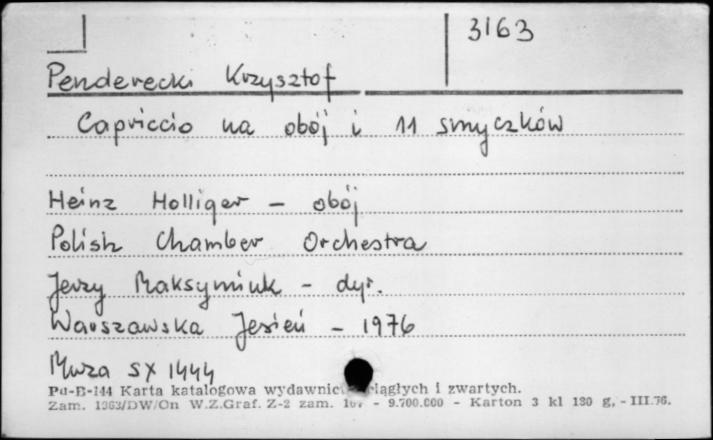 3163
Penderecki Krzysztof
Capriccio na obój i 11 smyczków
Heinz Holliger - obój
Polish Chamber Orchestra
Jerzy Maksymiuk - dyr.
Warszawska Jesień - 1976
Muza SX 1444
Pu-B-144 Karta katalogowa wydawnic ciągłych i zwartych.
Zam. 1363/DW/On W.Z.Graf. Z-2 zam. - 9.700.000 - Karton 3 kl 180 g, - III.76.